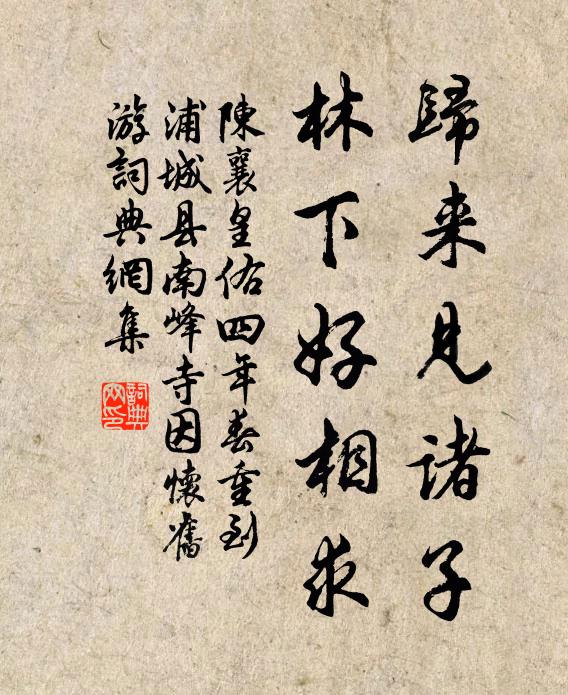 歸来見諸子
林下好相求
陳襄皇佑四年春重到
浦城县南峰寺因懷舊
游詞典網集
詞典
网印